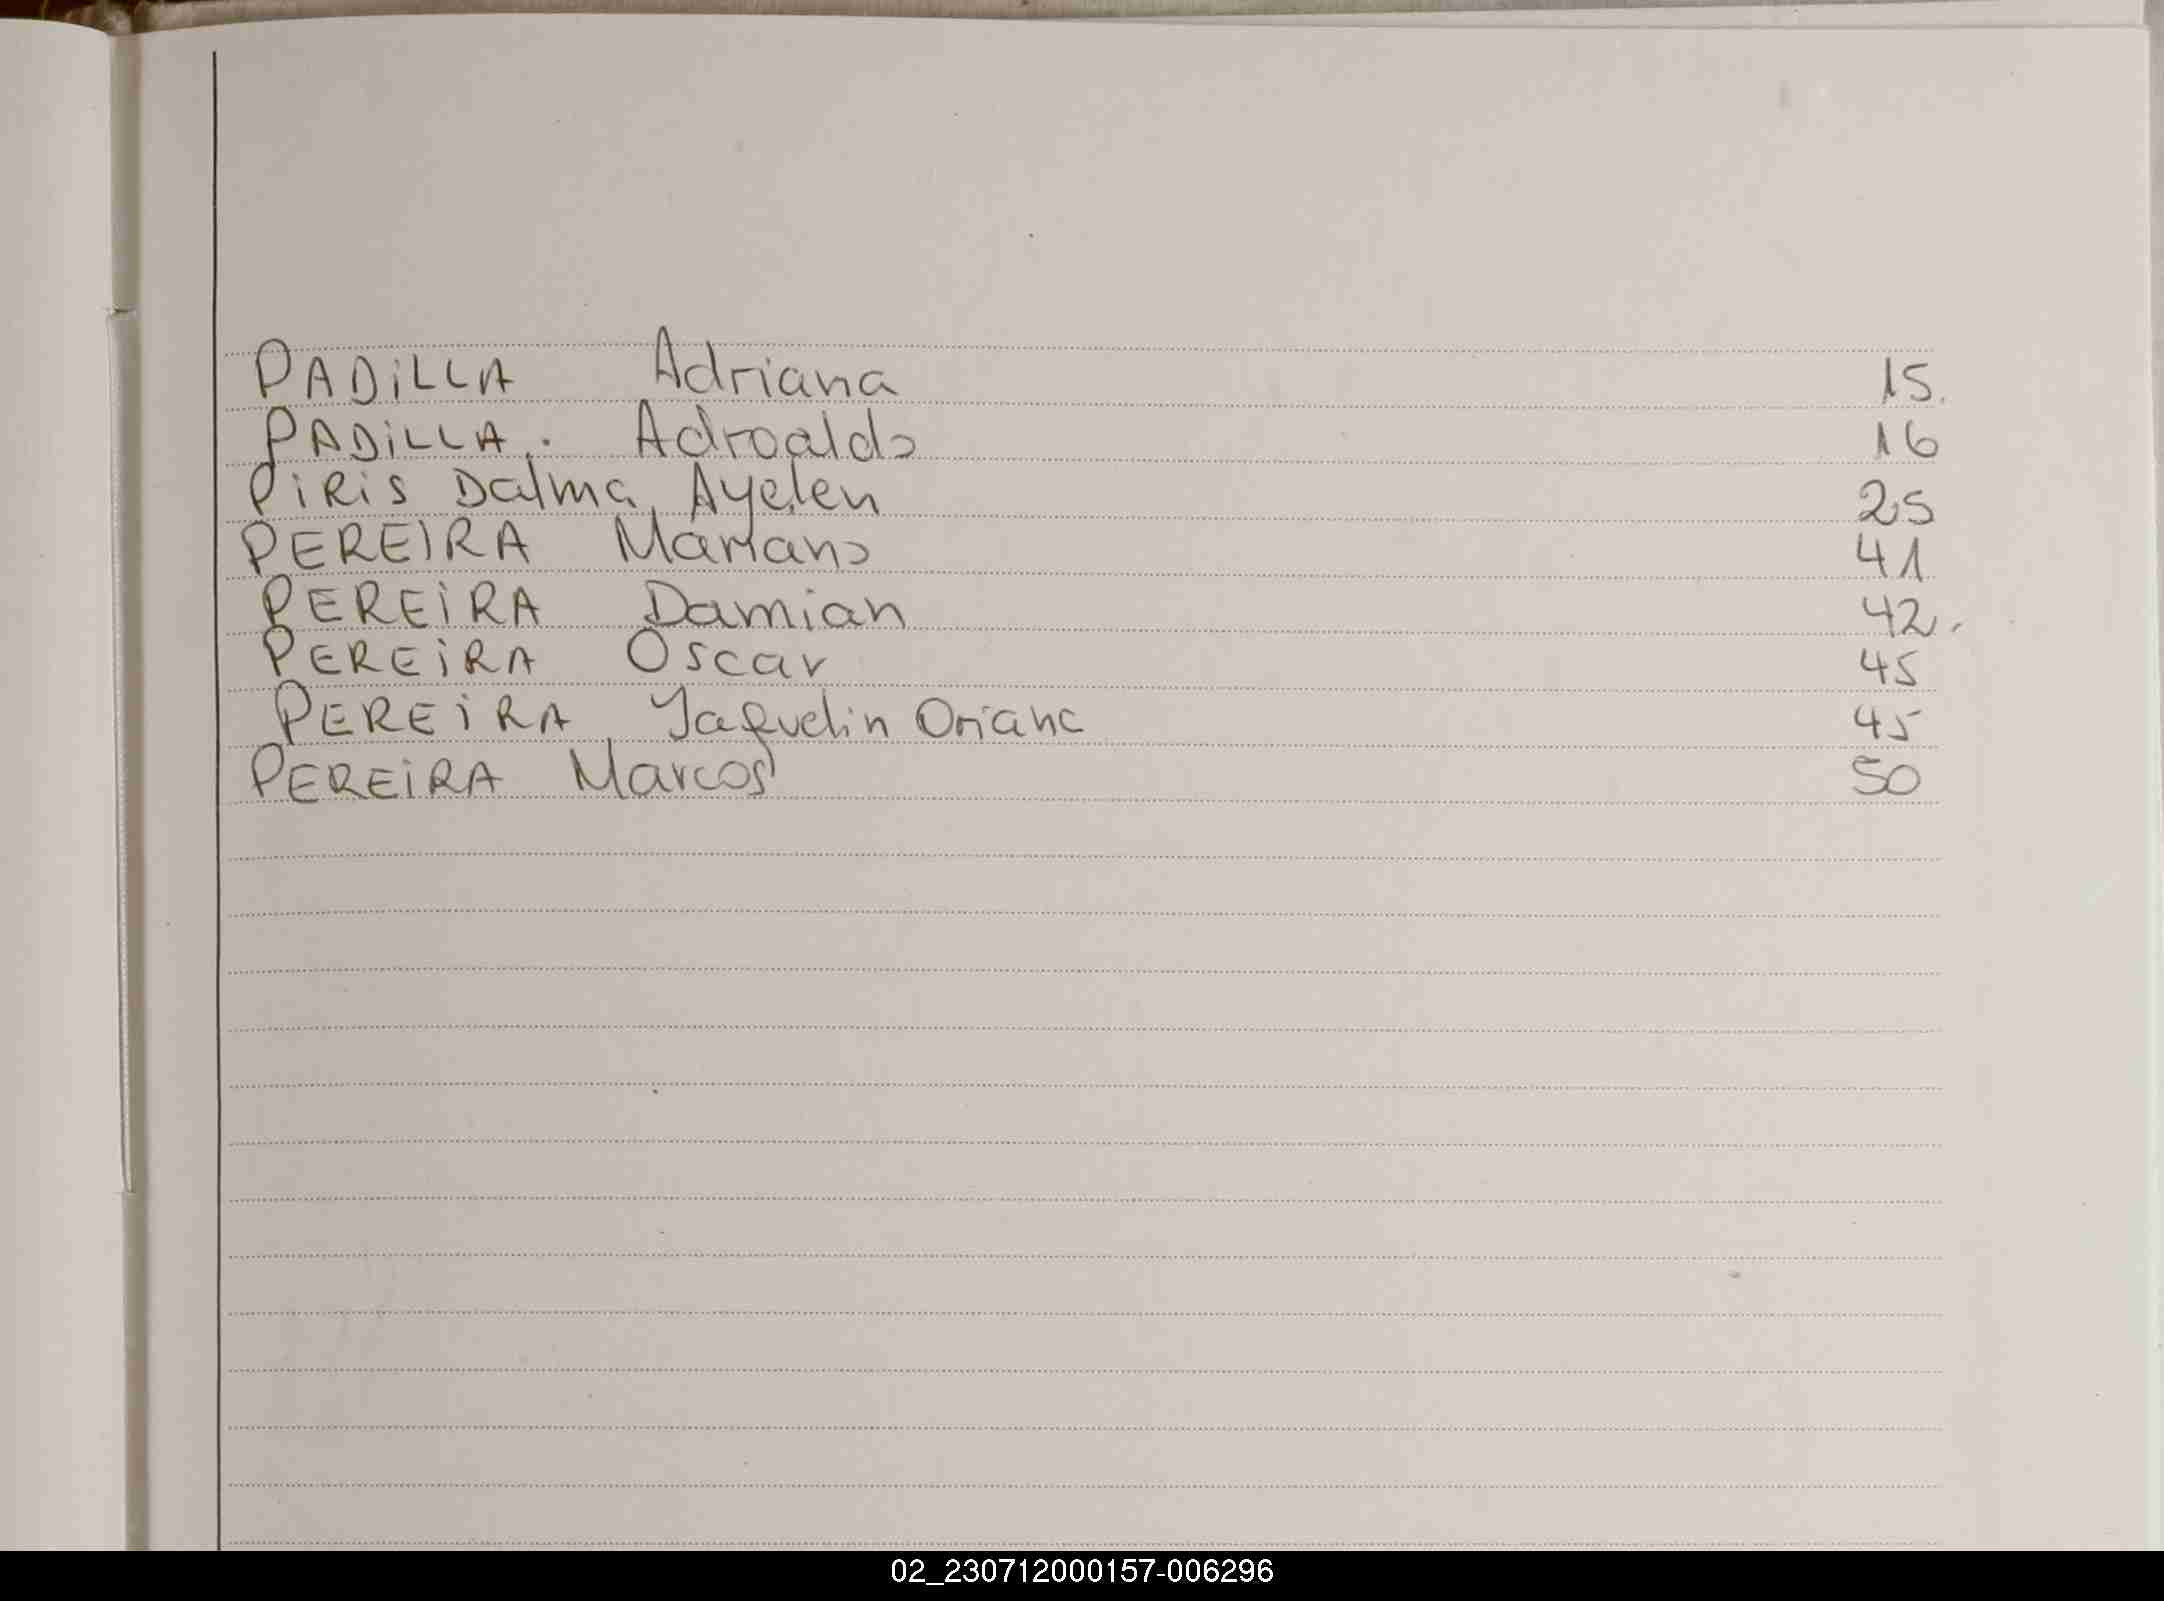 PADiLLA Adriana 15.
PADiLLA. Adroaldo 16
PiRiS Dalma Ayelen 25
PEREIRA Mariano 41
PEREiRA Damian 42.
PEREiRA Oscar 45
PEREiRA Yaquelin Oriana 45
PEREiRA Marcos 50
02_230712000157-006296